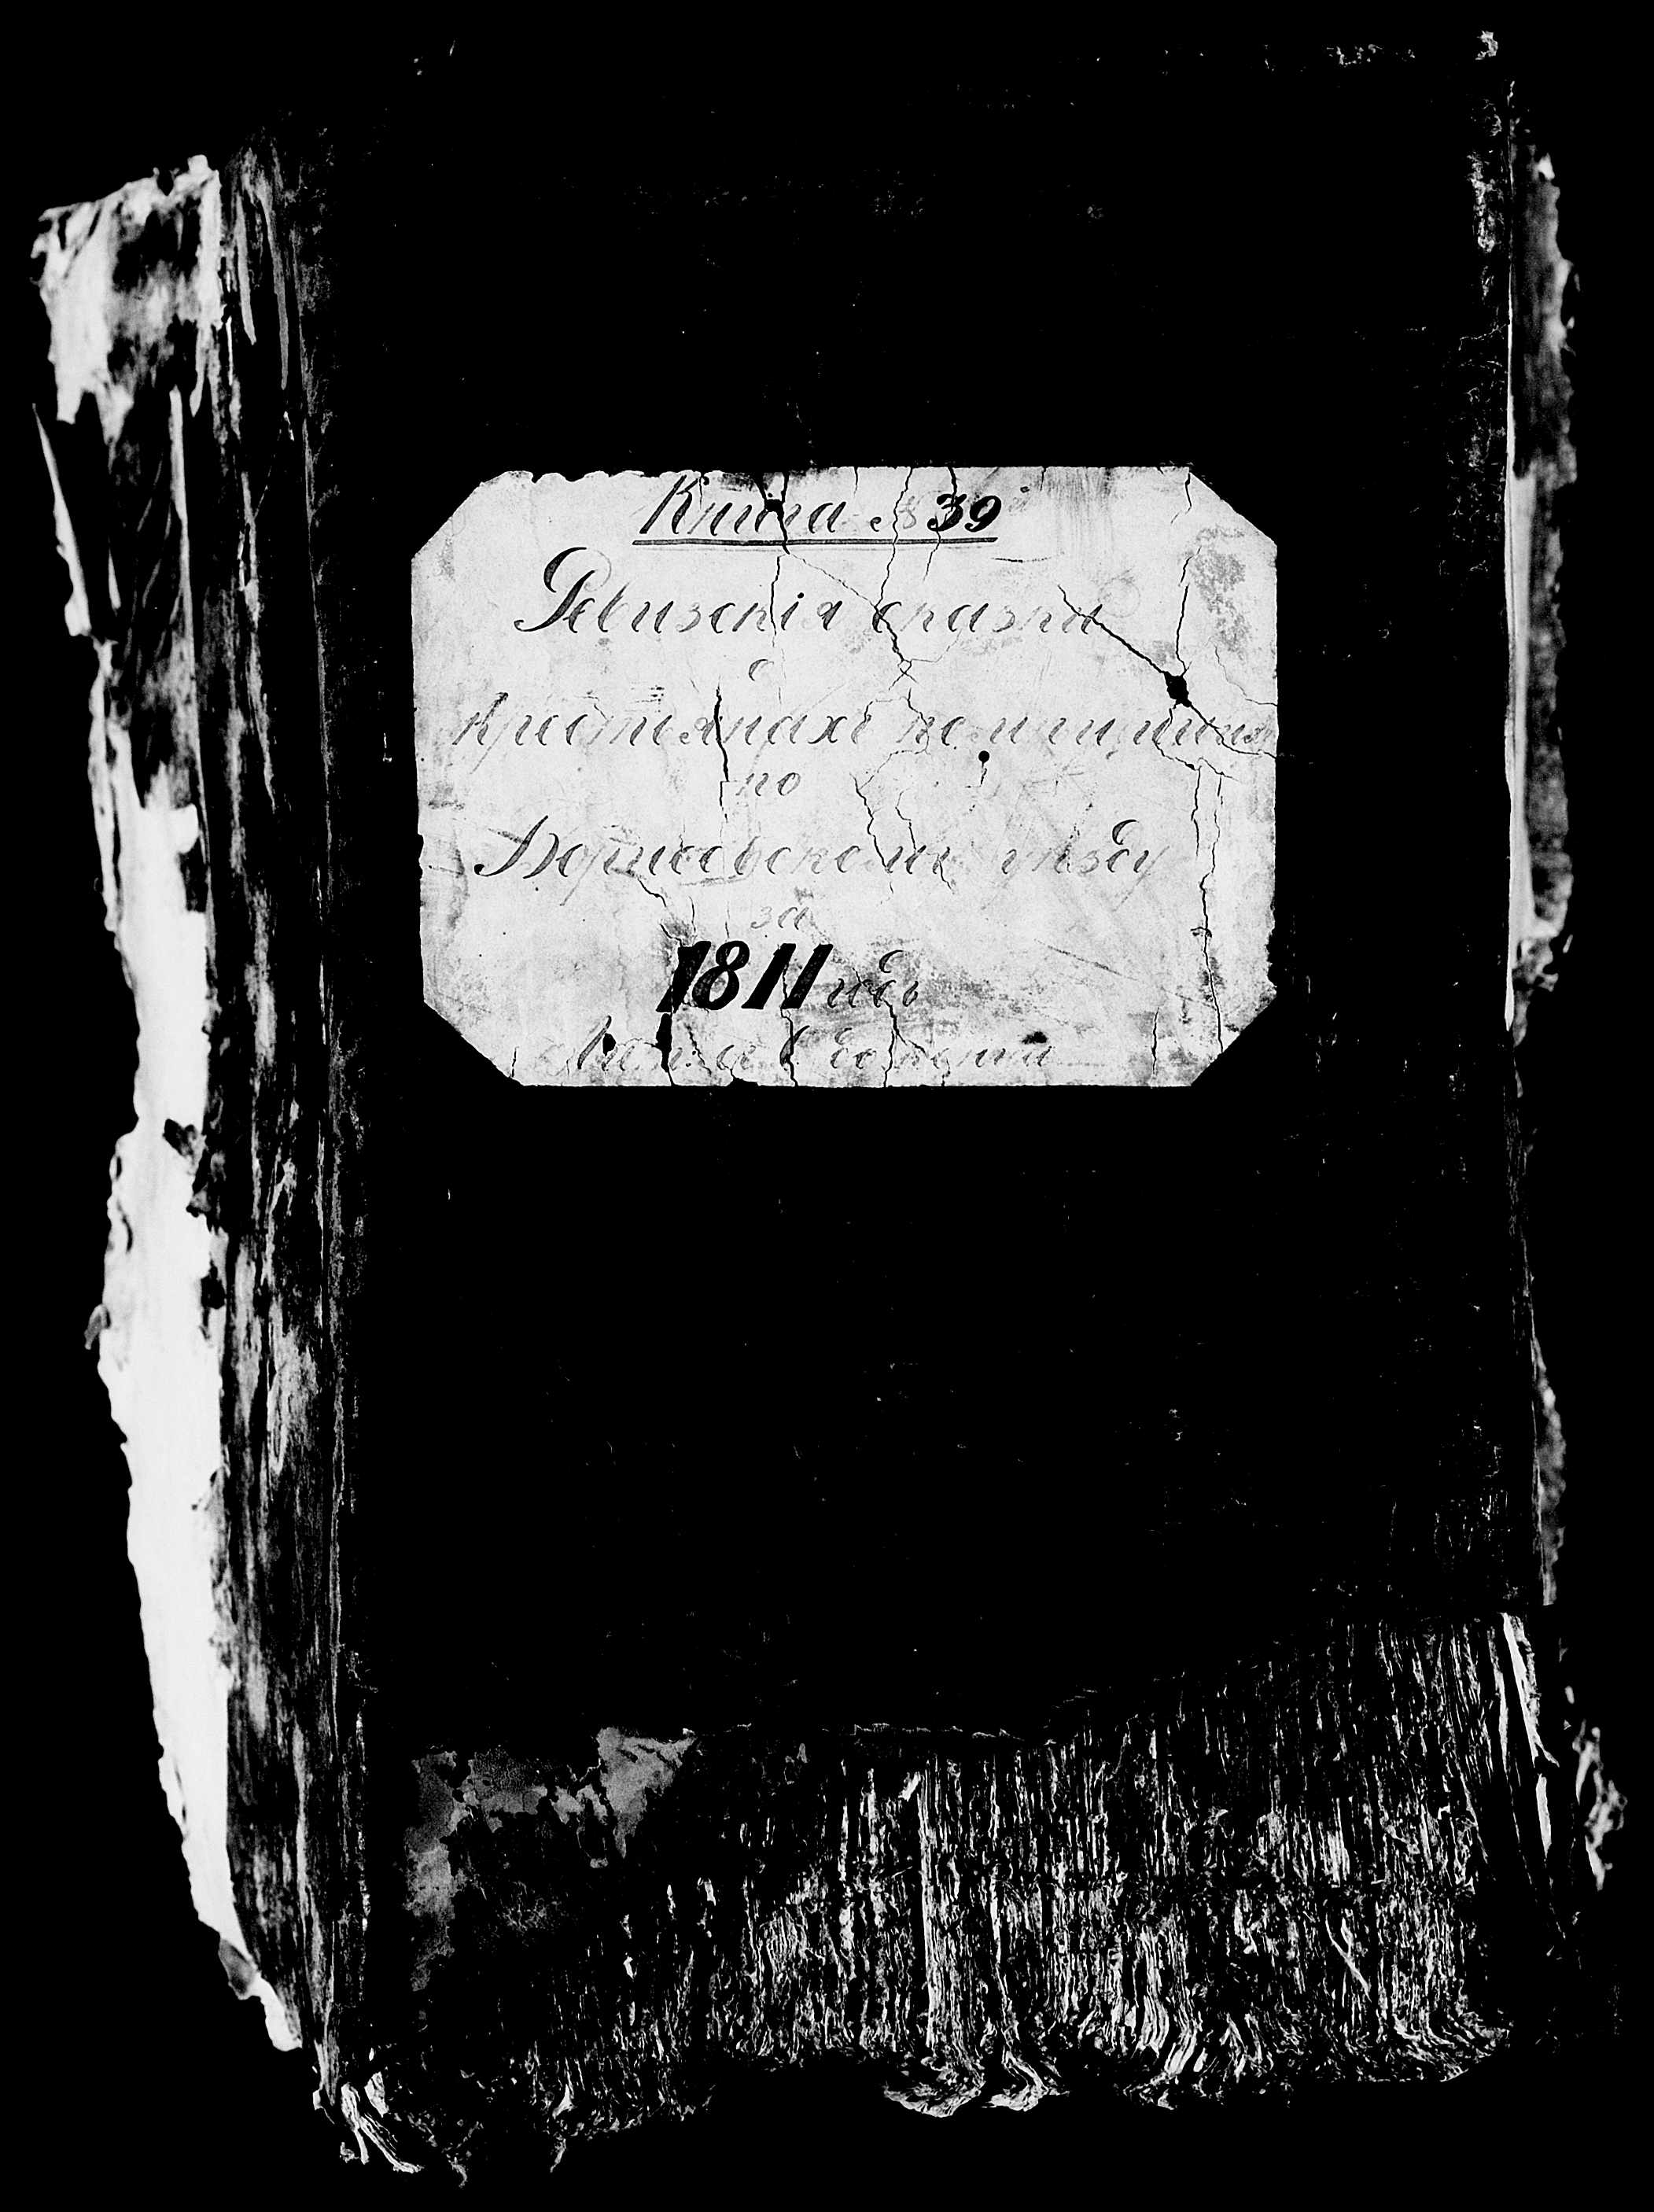 Книга № 39
Ревизскія сказки
о
крестьянахъ помѣщичьихъ
по
Борисовскому уѣзду
за
1811 годъ